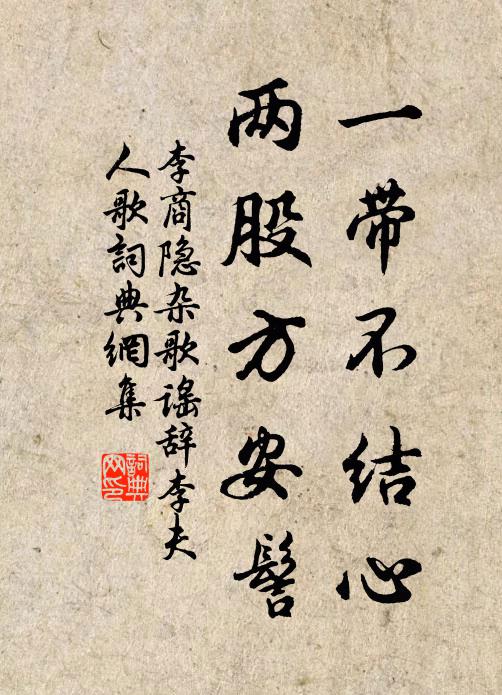 一带不结心
两股方安髻
李商隐杂歌谣辞李夫
人歌詞典網集
詞典網印